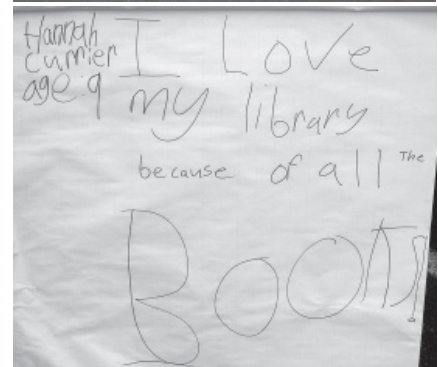 Hannah
Currier
age 9
I Love
my library
because of all The